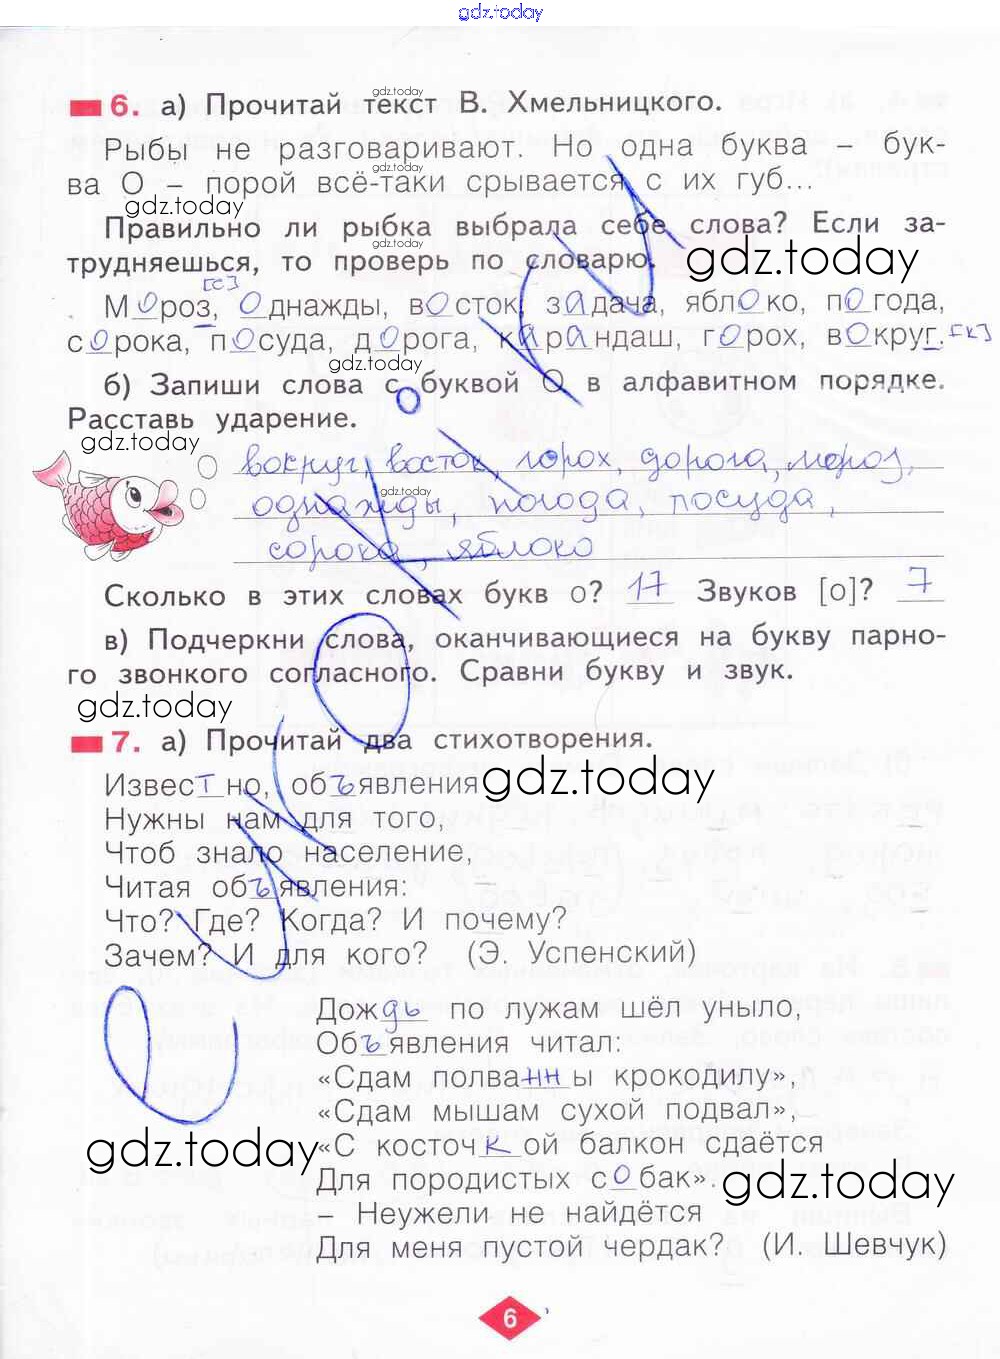 gdz.today
6. а) Прочитай текст В. Хмельницкого.
Рыбы не разговаривают. Но одна буква – бук-
ва О – порой всё-таки срывается с их губ...
Правильно ли рыбка выбрала себе слова? Если за-
трудняешься, то проверь по словарю.
[с]
Мороз, однажды, восток, задача, яблоко, погода,
сорока, посуда, дорога, карандаш, горох, вокруг. [к]
б) Запиши слова с буквой О в алфавитном порядке.
Расставь ударение.
вокруг, восток, горох, дорога, мороз,
однажды, погода, посуда,
сорока, яблоко
Сколько в этих словах букв о? 17 Звуков [о]? 7
в) Подчеркни слова, оканчивающиеся на букву парно-
го звонкого согласного. Сравни букву и звук.
7. а) Прочитай два стихотворения.
Известно, объявления
Нужны нам для того,
Чтоб знало население,
Читая объявления:
Что? Где? Когда? И почему?
Зачем? И для кого? (Э. Успенский)
Дождь по лужам шёл уныло,
Объявления читал:
«Сдам полванны крокодилу»,
«Сдам мышам сухой подвал»,
«С косточкой балкон сдаётся
Для породистых собак».
– Неужели не найдётся
Для меня пустой чердак? (И. Шевчук)
6
gdz.today
gdz.today
gdz.today
gdz.today
gdz.today
gdz.today
gdz.today
gdz.today
gdz.today
gdz.today
gdz.today
gdz.today
gdz.today